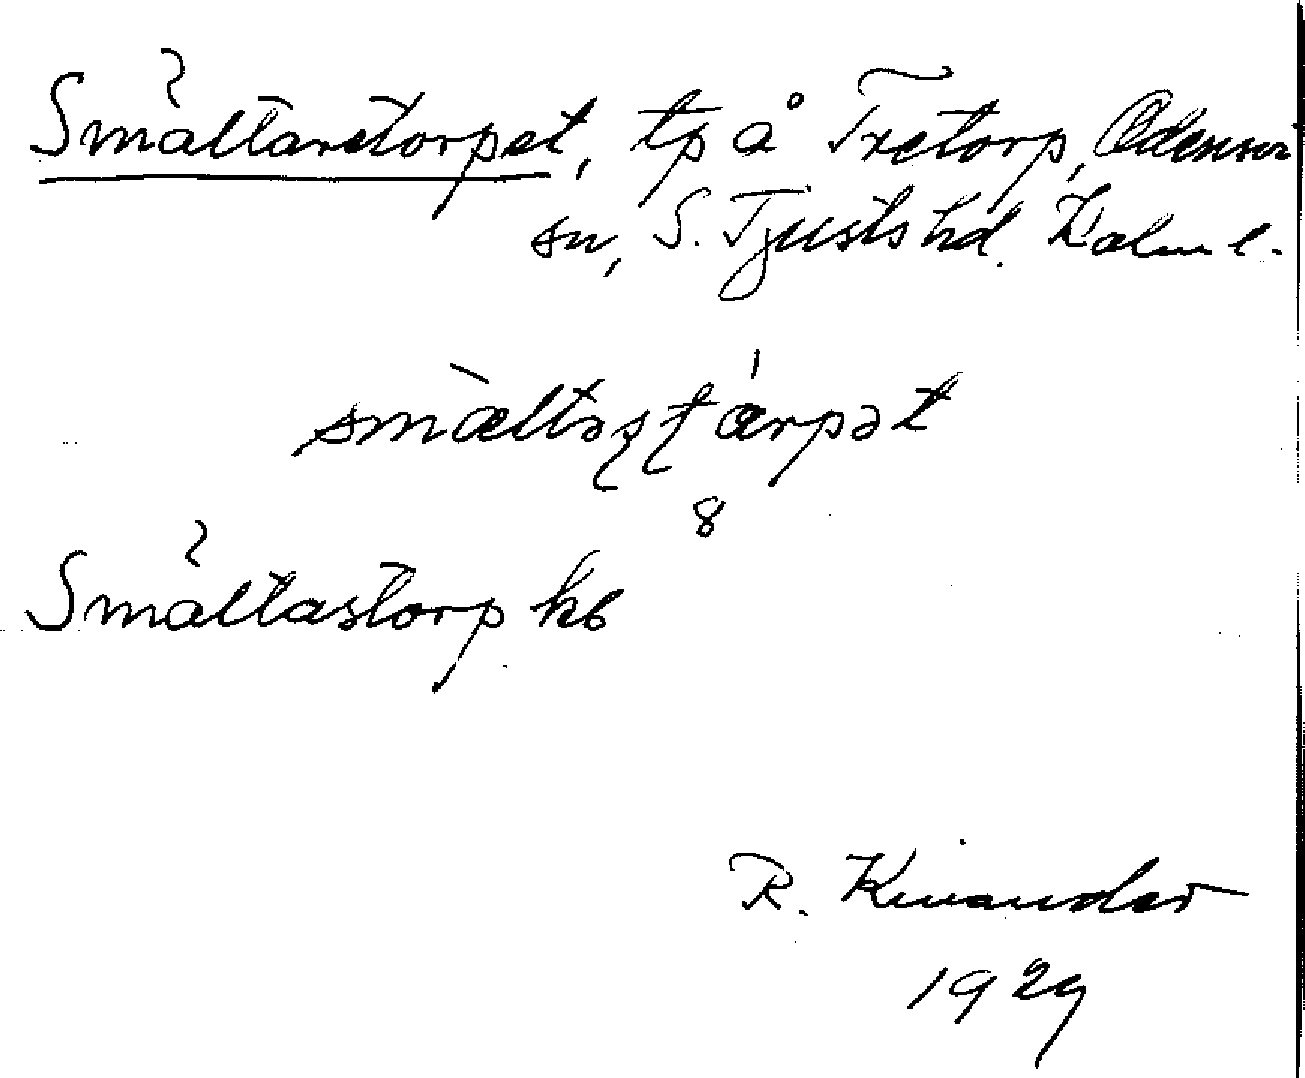 Smältaretorpet, tp å Fretorp, Odensvi
sn, S. Tjusts hd. Kalm l.
smæltas̩t ærpət
8
Smältastorp kb
R. Kinander
1929